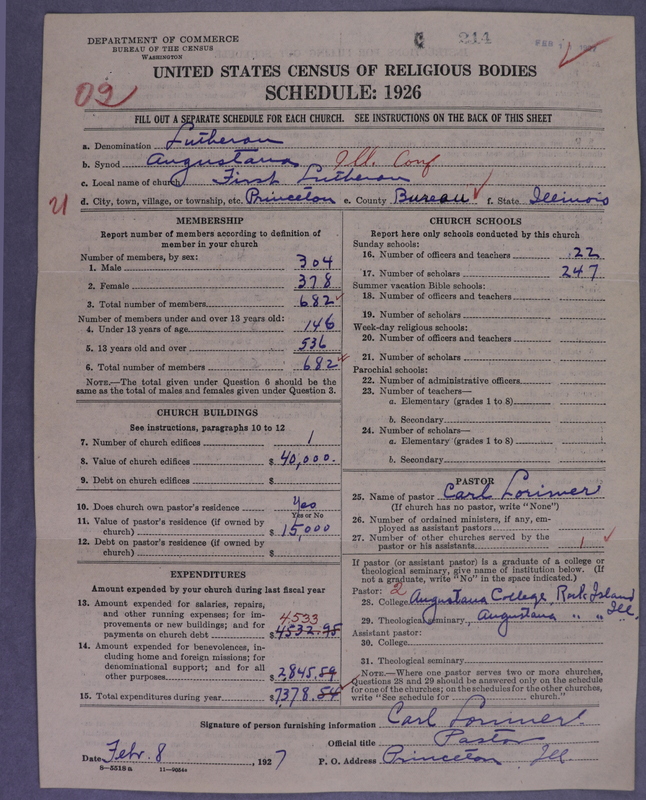 DEPARTMENT OF COMMERCE
BUREAU OF THE CENSUS
WASHINGTON
C 214
FEB
UNITED STATES CENSUS OF RELIGIOUS BODIES
SCHEDULE: 1926
09
FILL OUT A SEPARATE SCHEDULE FOR EACH CHURCH. SEE INSTRUCTIONS ON THE BACK OF THIS SHEET
a. Denomination Lutheran
b. Synod Augustana Ill. Conf
c. Local name of church First Lutheran
21 d. City, town, village, or township, etc. Princeton e. County Bureau f. State Illinois
MEMBERSHIP
Report number of members according to definition of
member in your church
Number of members, by sex:
1. Male 304
2. Female 378
3. Total number of members 682
Number of members under and over 13 years old:
4. Under 13 years of age 146
5. 13 years old and over 536
6. Total number of members 682
NOTE.—The total given under Question 6 should be the
same as the total of males and females given under Question 3.
CHURCH BUILDINGS
See instructions, paragraphs 10 to 12
7. Number of church edifices 1
8. Value of church edifices $ 40,000.
9. Debt on church edifices $
10. Does church own pastor's residence Yes
Yes or No
11. Value of pastor's residence (if owned by
church) $ 15,000
12. Debt on pastor's residence (if owned by
church) $
EXPENDITURES
Amount expended by your church during last fiscal year
13. Amount expended for salaries, repairs,
and other running expenses; for im-
provements or new buildings; and for 4533
payments on church debt $ 4532.95
14. Amount expended for benevolences, in-
cluding home and foreign missions; for
denominational support; and for all
other purposes $ 2845.59
15. Total expenditures during year $ 7378.54
CHURCH SCHOOLS
Report here only schools conducted by this church
Sunday schools:
16. Number of officers and teachers 22
17. Number of scholars 247
Summer vacation Bible schools:
18. Number of officers and teachers
19. Number of scholars
Week-day religious schools:
20. Number of officers and teachers
21. Number of scholars
Parochial schools:
22. Number of administrative officers
23. Number of teachers—
a. Elementary (grades 1 to 8)
b. Secondary
24. Number of scholars—
a. Elementary (grades 1 to 8)
b. Secondary
PASTOR
25. Name of pastor Carl Lorimer
(If church has no pastor, write "None")
26. Number of ordained ministers, if any, em-
ployed as assistant pastors
27. Number of other churches served by the
pastor or his assistants 1
If pastor (or assistant pastor) is a graduate of a college or
theological seminary, give name of institution below. (If
not a graduate, write "No" in the space indicated.)
Pastor: 2
28. College Augustana College, Rock Island
Ill.
29. Theological seminary, Augustana " "
Assistant pastor:
30. College
31. Theological seminary
NOTE.—Where one pastor serves two or more churches,
Questions 28 and 29 should be answered only on the schedule
for one of the churches; on the schedules for the other churches,
write "See schedule for church."
Signature of person furnishing information Carl Lorimer
Official title Pastor
Date Febr. 8, 1927 P. O. Address Princeton Ill.
8—5518a 11—9084a